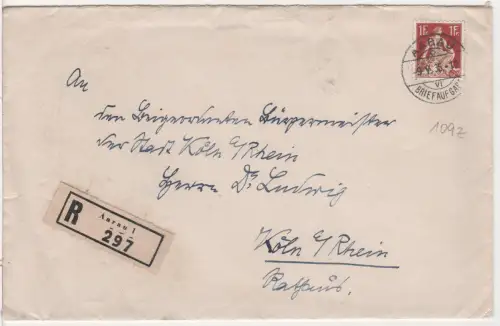 1F. 1F.
AARAU
VI
BRIEFAUFGABE
109z
An
den Beigeordneten Bürgermeister
der Stadt Köln a/Rhein
Herrn Dr. Ludwig
R
Aarau 1
297
Köln a/Rhein
Rathaus.